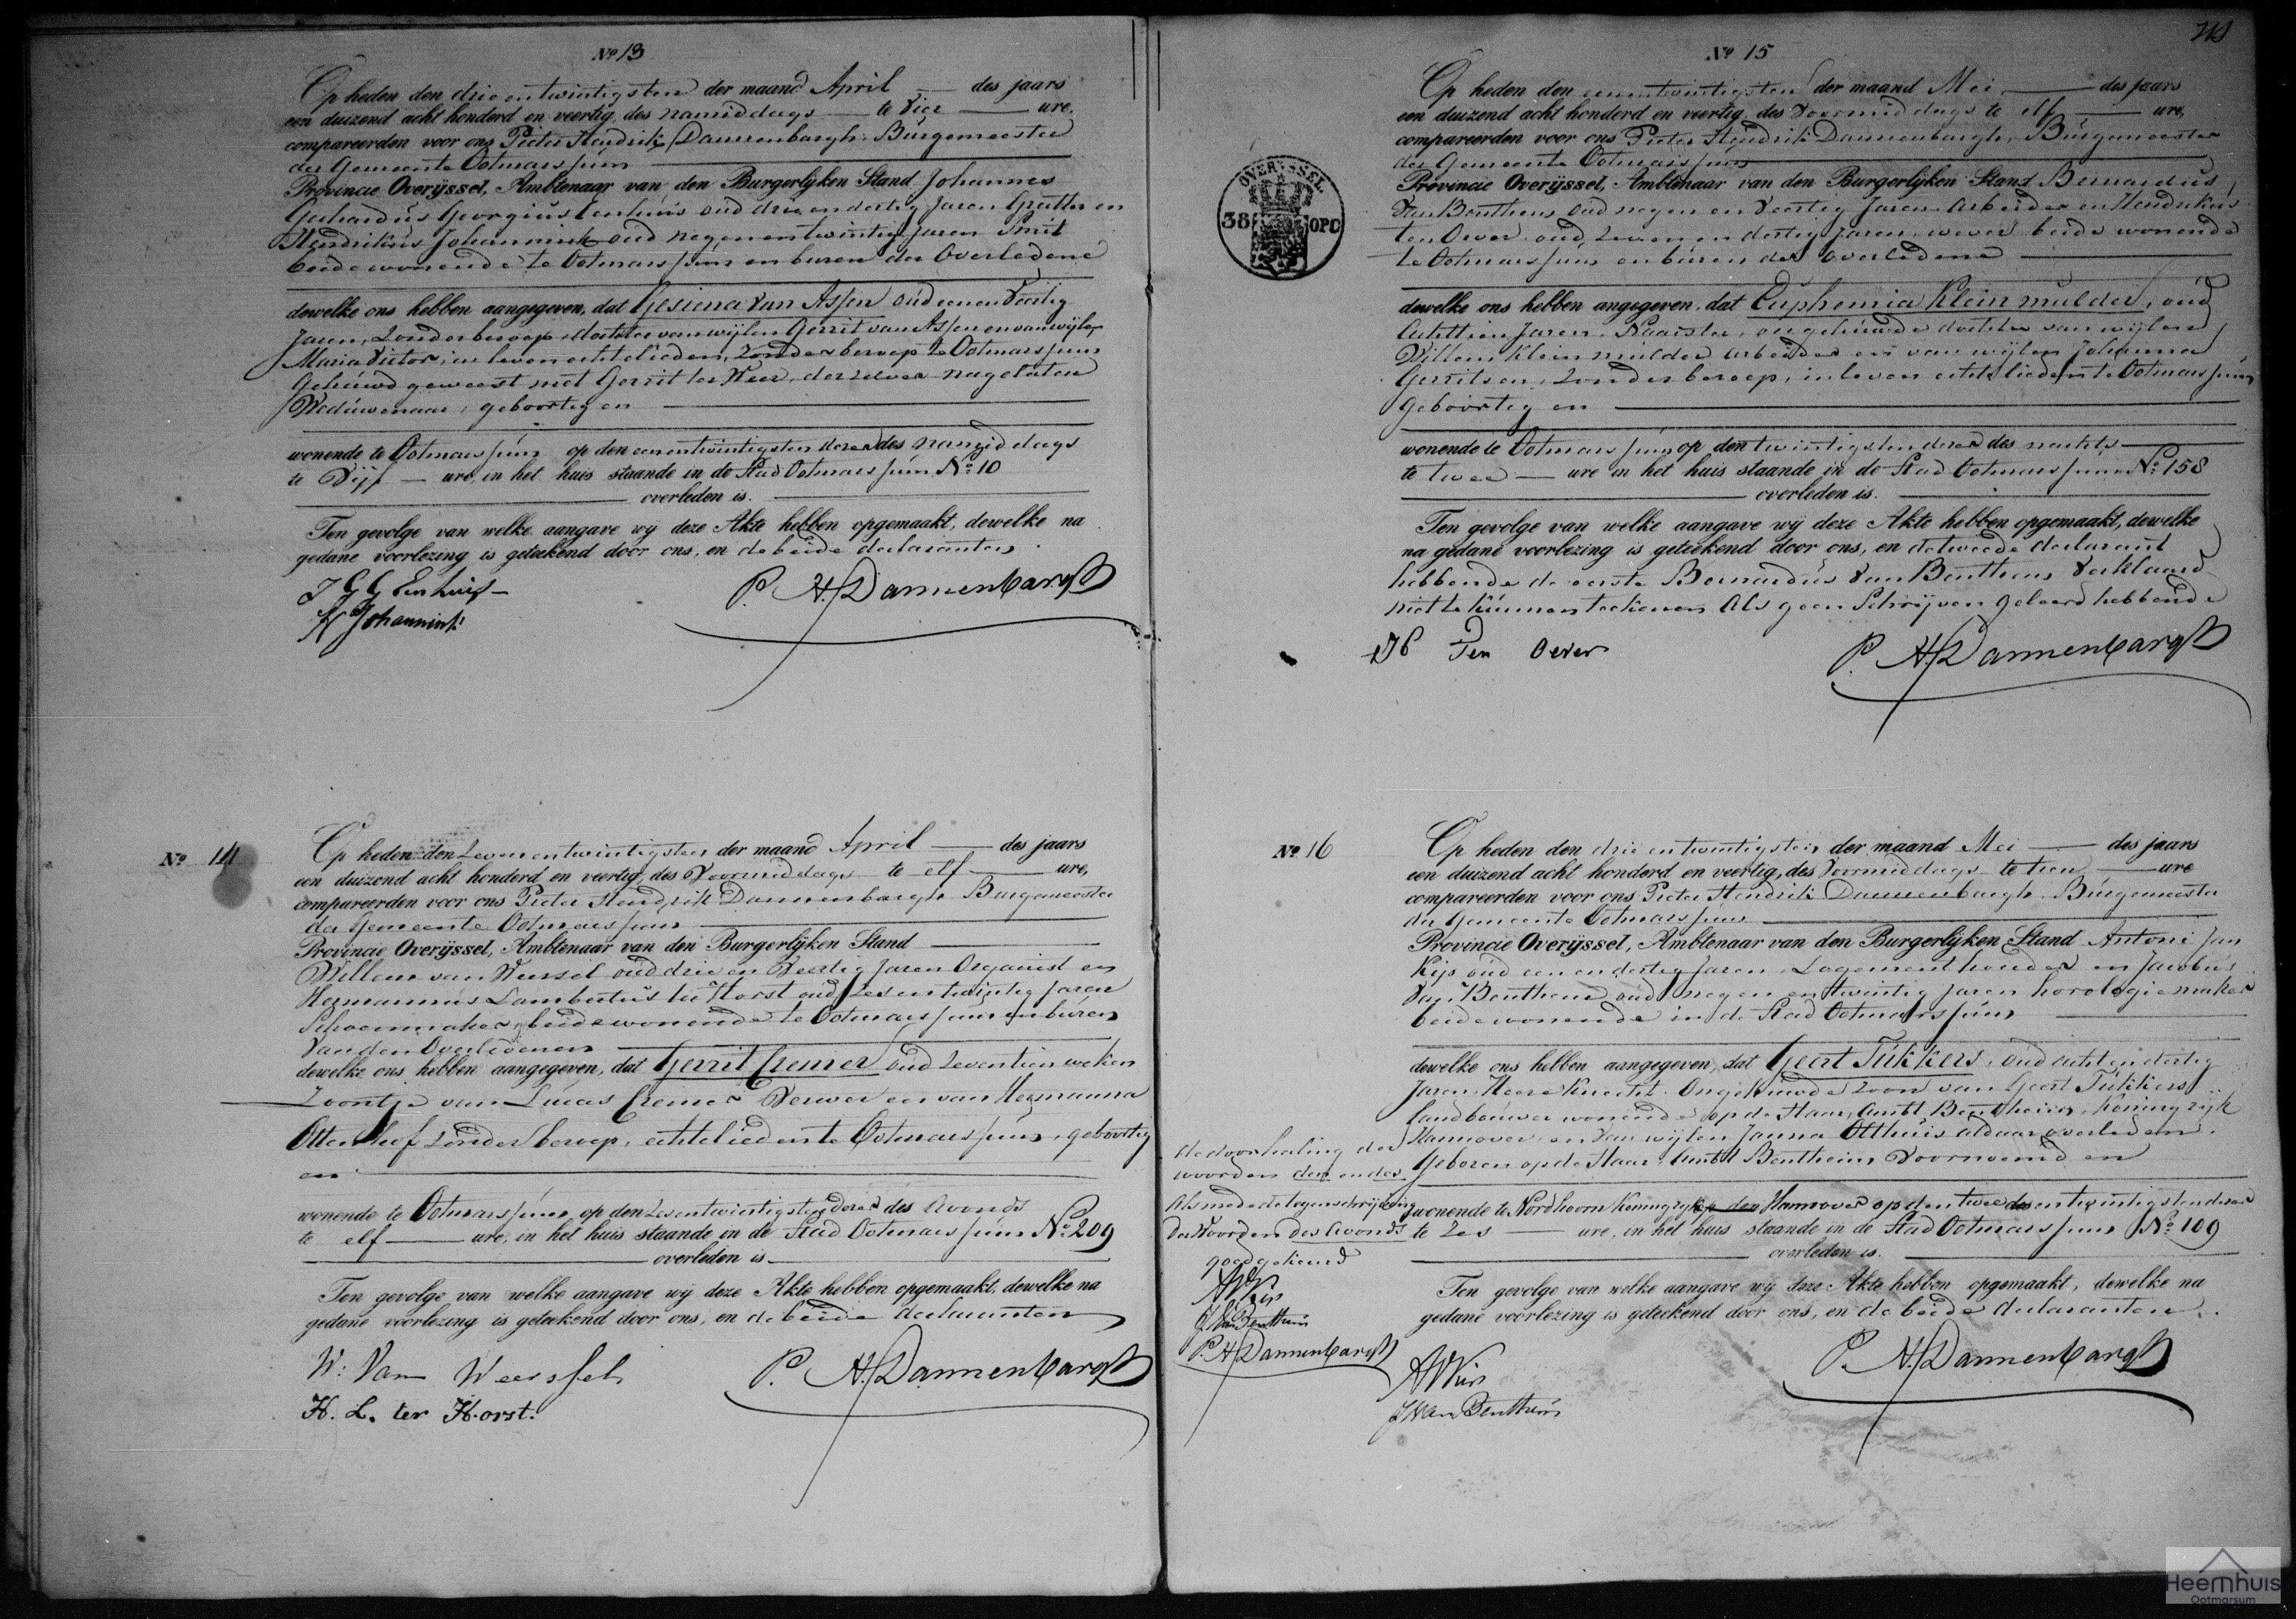 Nº 13
Op heden den drie en twintigsten der maand April des jaars
een duizend acht honderd en veertig, des namiddags te Vier ure,
compareerden voor ons Pieter Hendrik Dannenbargh Burgemeester
der Gemeente Ootmarssum
Provincie Overijssel, Ambtenaar van den Burgerlijken Stand Johannes
Gerhardus Georgius Eenhuis oud drie en dertig Jaren en
Hendrikus Johannink oud negenentwintig Jaren Smit
beide wonende te Ootmarssum en buren der Overledene
dewelke ons hebben aangegeven, dat Gesiena van Assen oud eenen Veertig
Jaren, Zonder beroep dochter van wijlen Gerrit van Assen en van wijlen
Maria Victor, in leven echtelieden, Zonder beroep te Ootmarssum
Gehuwd geweest met Gerrit ter Weer, derzelver nagelaten
Weduwenaar, geboortig en
wonende te Ootmarssum op den eenentwintigsten dezer des namiddags
te Vijf ure, in het huis staande in de Stad Ootmarssum Nº 10
overleden is.
Ten gevolge van welke aangave wij deze Akte hebben opgemaakt, dewelke na
gedane voorlezing is geteekend door ons, en de beide declaranten
J G G Eenhuis
H Johannink
P. H. Dannenbargh
Nº 14
Op heden den Zevenentwintigsten der maand April des jaars
een duizend acht honderd en veertig, des Voormiddags te elf ure,
compareerden voor ons Pieter Hendrik Dannenbargh Burgemeester
der Gemeente Ootmarssum
Provincie Overijssel, Ambtenaar van den Burgerlijken Stand
Willem van Weersel oud drie en Veertig Jaren Organist en
Hermannus Lambertus ter Horst oud Zesentwintig Jaren
Schoenmaker beide wonende te Ootmarssum en buren
Van den Overledenen
dewelke ons hebben aangegeven, dat Gerrit Cremer oud Zeventien weken
Zoontje van Lucas Cremer Verwer en van Hermanna
Ottenhof Zonder beroep, echtelieden te Ootmarssum, geboortig
en
wonende te Ootmarssum, op den Zesentwintigsten dezer des Avonds
te elf ure, in het huis staande in de Stad Ootmarssum Nº 209
overleden is
Ten gevolge van welke aangave wij deze Akte hebben opgemaakt, dewelke na
gedane voorlezing is geteekend door ons, en de beide declaranten
W: Van Weerssel
H. L. ter Horst.
P. H. Dannenbargh
Nº 15
Op heden den eenentwintigsten der maand Mei des jaars
een duizend acht honderd en veertig, des Voormiddags te elf ure,
compareerden voor ons Pieter Hendrik Dannenbargh, Burgemeester
der Gemeente Ootmarssum
Provincie Overijssel, Ambtenaar van den Burgerlijken Stand Bernardus
Van Benthem, oud negen en Veertig Jaren Arbeider en Hendrikus
ten Oever oud Zeven en dertig Jaren, wever beide wonende
te Ootmarssum en buren der overledene
OVERYSSEL
38 OPC
dewelke ons hebben angegeven, dat Euphemia Klein mulder, oud
Achttien Jaren, Naaister, ongehuwde dochter van wijlen
Willem Klein mulder arbeider en van wijlen Johanna
Gerritsen, Zonder beroep, in leven echtelieden te Ootmarssum
geboortig en
wonende te Ootmarssum op den twintigsten dezer des nachts
te twee ure in het huis staande in de Stad Ootmarssum Nº 158
overleden is.
Ten gevolge van welke aangave wij deze Akte hebben opgemaakt, dewelke
na gedane voorlezing is geteekend door ons, en de tweede declarant
hebbende de eerste Bernardus Van Benthem Verklaard
niet te kunnen teekenen Als geen Schrijven geleerd hebbende
H Ten Oever
P. H. Dannenbargh
Nº 16
Op heden den drie en twintigsten der maand Mei des jaars
een duizend acht honderd en veertig, des Voormiddags te tien ure
compareerden voor ons Pieter Hendrik Dannenbargh, Burgemeester
der Gemeente Ootmarssum
Provincie Overijssel, Ambtenaar van den Burgerlijken Stand Antoni Jan
Kijs oud een en dertig Jaren, Logementhouder en Jacobus
Van Benthem oud negen en twintig Jaren horologiemaker
beide wonende in de Stad Ootmarssum
dewelke ons hebben aangegeven, dat Geert Tukkers, oud acht en dertig
Jaren Heere Knecht Ongehuwde Zoon van Geert Tukkers
landbouwer wonende op de Haar, Ambt Bentheim, Koningrijk
Hannover en Van wijlen Janna Olthuis aldaar overleden.
Geboren op de Haar Ambt Bentheim Voornoemd en
wonende te Nordhoorn Koningrijk Hannover op den twee en twintigsten dezer
te Zes ure, in het huis staande in de Stad Ootmarssum Nº 109
overleden is.
de doorhaling der
woorden den en des
Alsmede de tegenschrijving
der Woorden des Avonds
goedgekeurd
J Van Benthem
P. H. Dannenbargh
Ten gevolge van welke aangave wij deze Akte hebben opgemaakt, dewelke na
gedane voorlezing is geteekend door ons, en de beide declaranten
J Van Benthem
P. H. Dannenbargh
Heemhuis
Ootmarsum